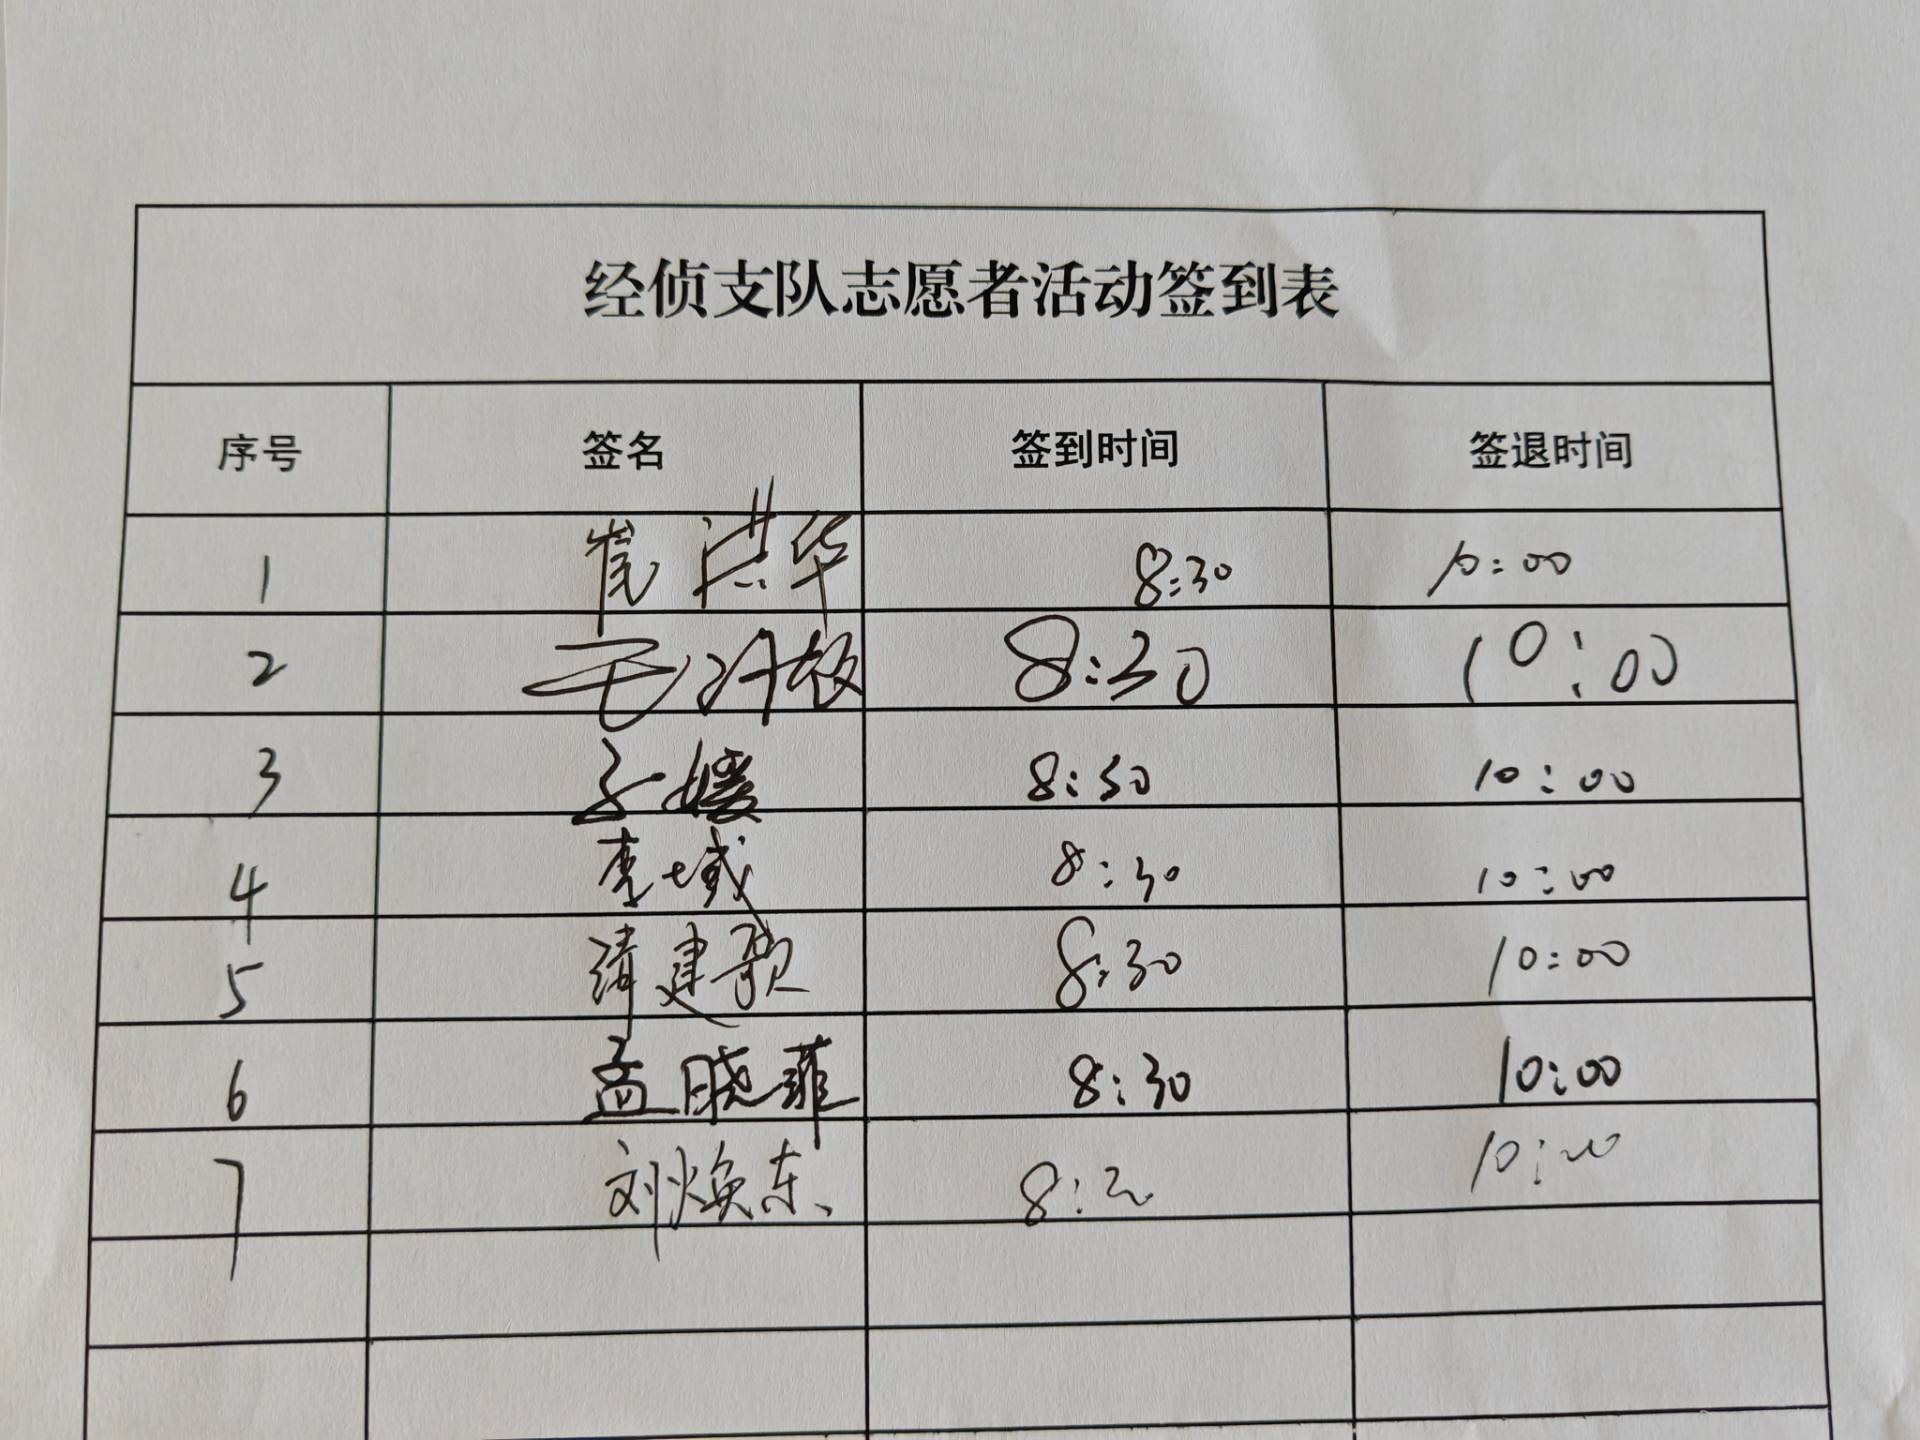 经侦支队志愿者活动签到表
序号 签名 签到时间 签退时间
1 崔洪华 8:30 10:00
2 8:30 10:00
3 8:30 10:00
4 李域 8:30 10:00
5 建歌 8:30 10:00
6 孟晓菲 8:30 10:00
7 刘焕东 10:00